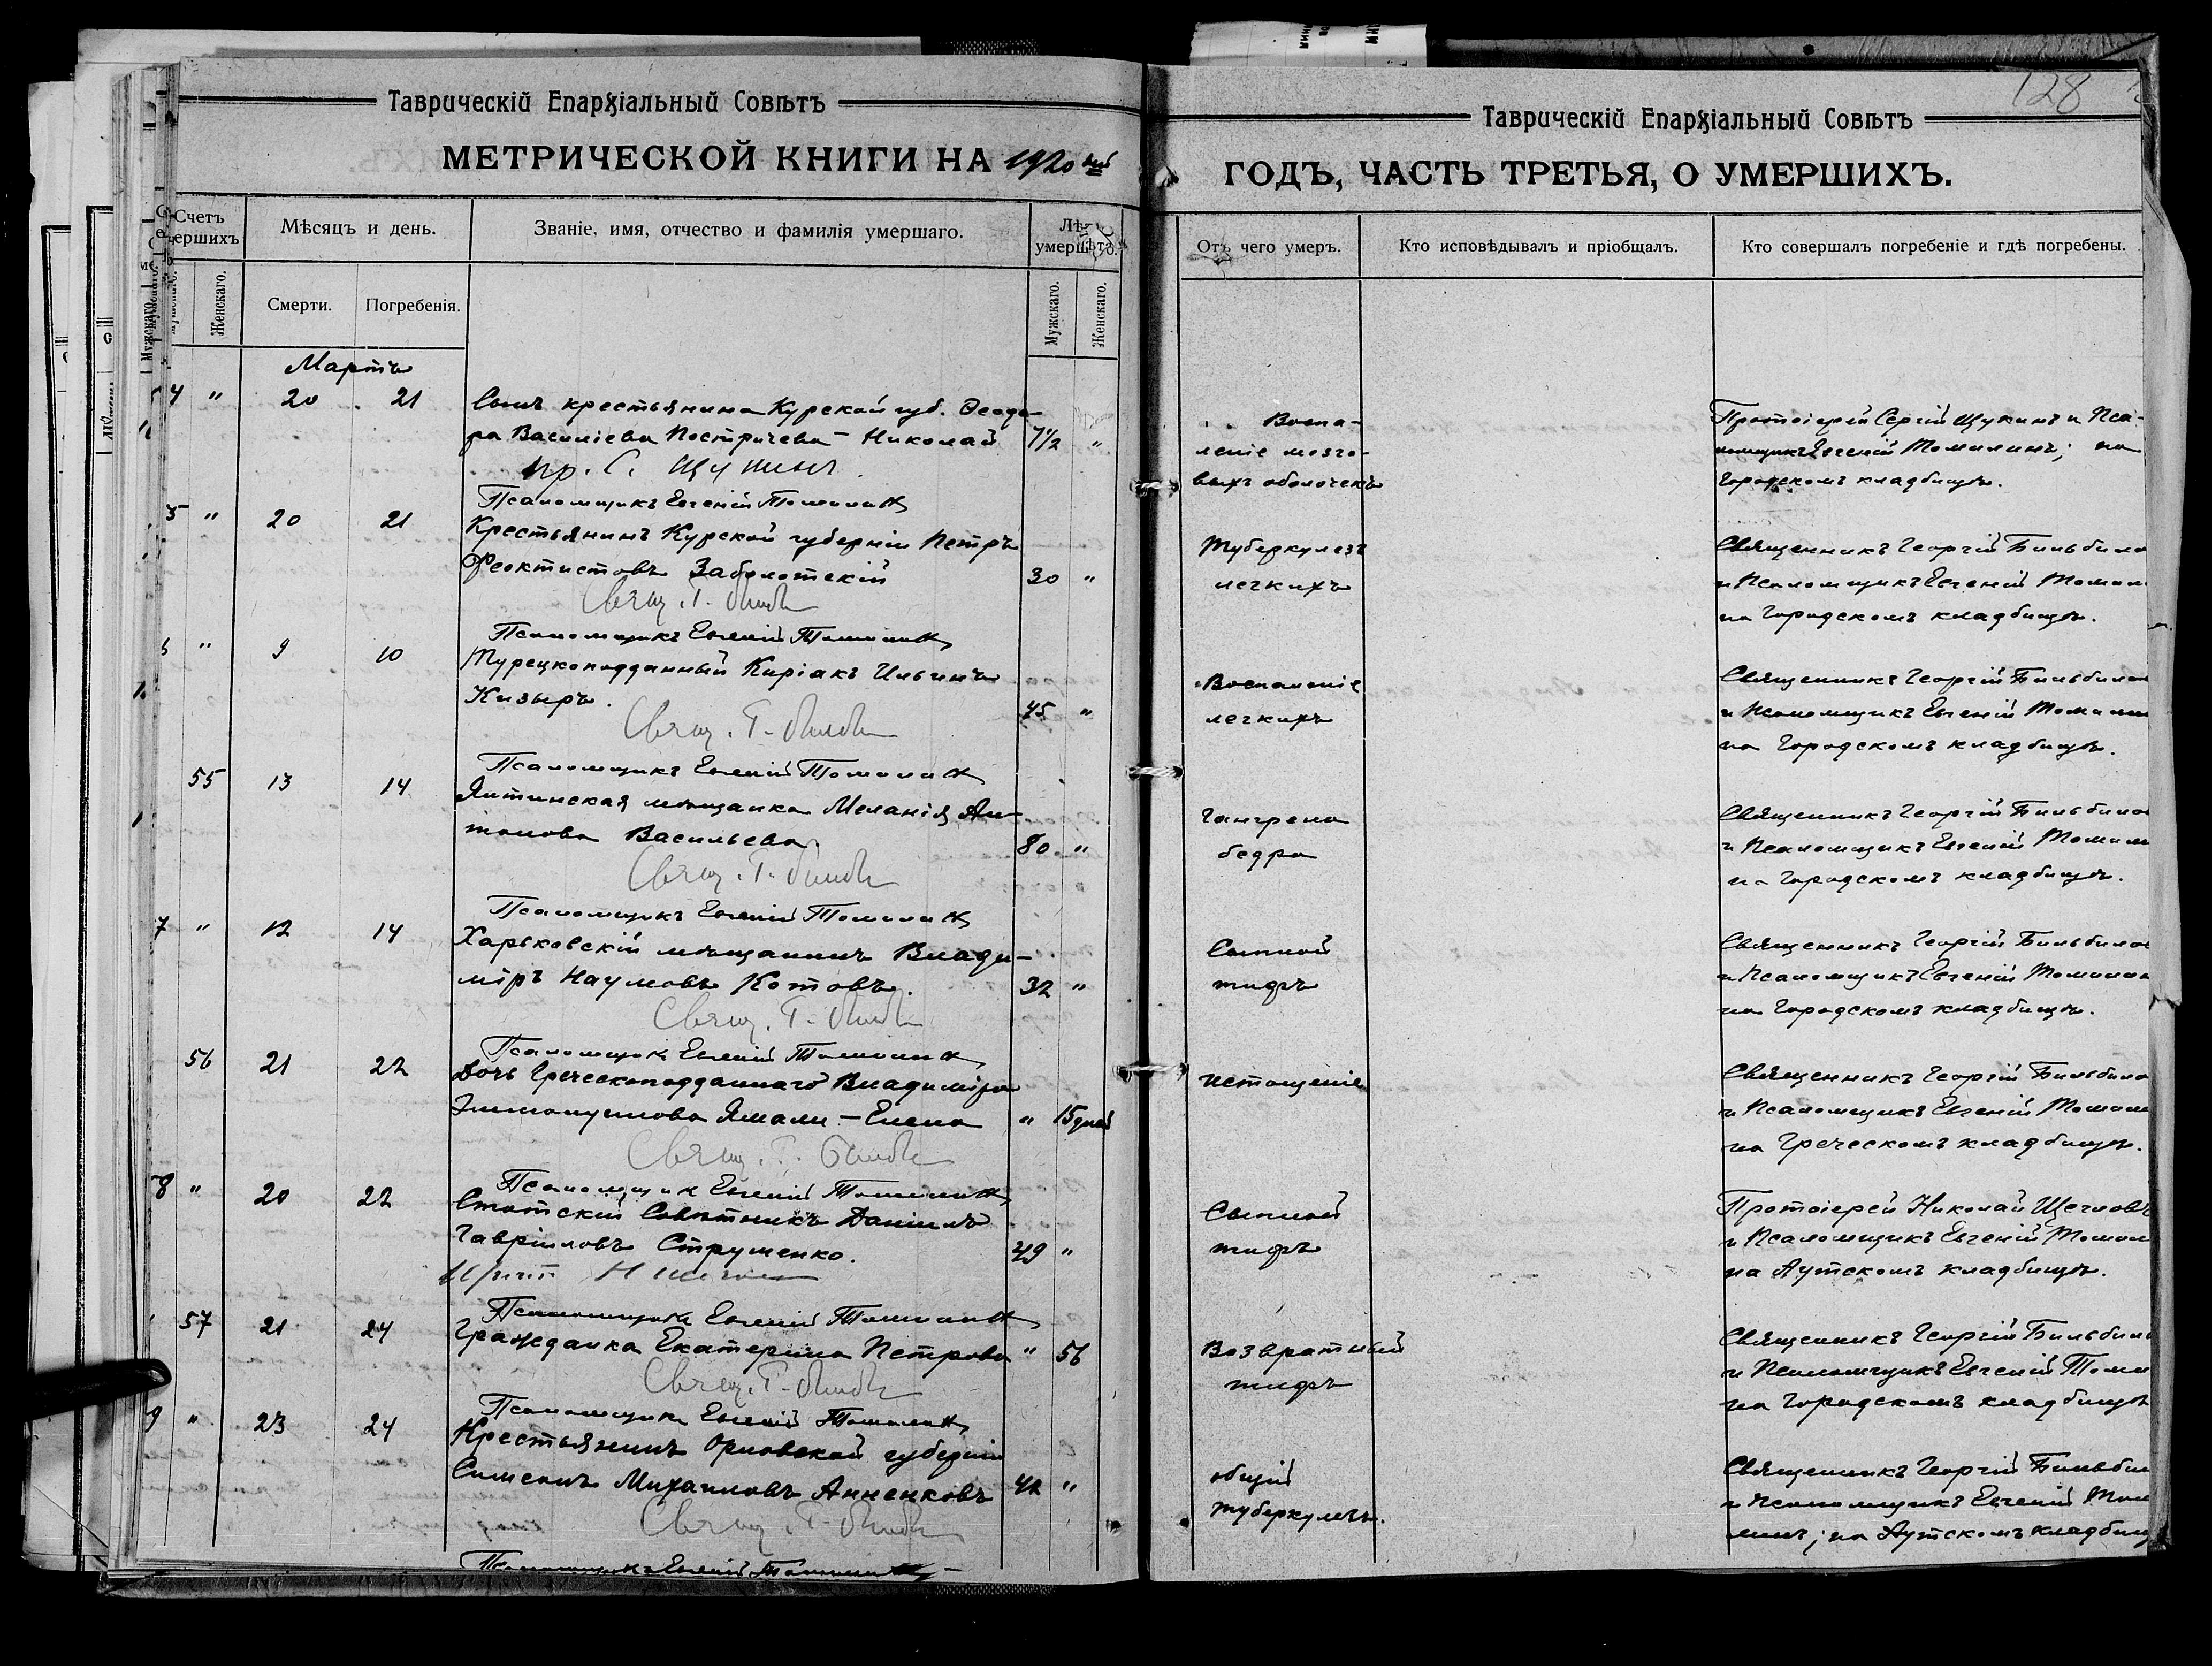 Таврическій Епархіальный Совѣтъ
МЕТРИЧЕСКОЙ КНИГИ НА 1920 ый
Счетъ
ершихъ
Мѣсяцъ и день.
Званіе, имя, отчество и фамилія умершаго.
Лѣ
умершаго.
Женскаго.
Смерти.
Погребенія.
Мужскаго.
Женскаго.
Мартъ
4 " 20 21 Сынъ крестьянина Курской губ. Ѳеодо-
ра Василіева Пострычева - Николай 7 1/2 "
пр. С. Щукинъ
Псаломщикъ Евгеній Томилинъ
5 " 20 21 Крестьянинъ Курской губерніи Петръ
Феоктистовъ Заболотскій 30 "
Свящ. Г.
Псаломщикъ Евгеній Томилинъ
6 " 9 10 Турецкоподданный Киріакъ Ильинъ
Кизыръ. 45 "
Свящ. Г.
Псаломщикъ Евгеній Томилинъ
55 13 14 Ялтинская мѣщанка Меланія Ан-
тонова Васильева. 80 "
Свящ. Г.
Псаломщикъ Евгеній Томилинъ
7 " 12 14 Харьковскій мѣщанинъ Влади-
міръ Наумовъ Котовъ. 32 "
Свящ. Г.
Псаломщикъ Евгеній Томилинъ
56 21 22 Дочь Греческоподданнаго Владиміра
Эммануилова Ямали - Елена " 15 дней
Свящ. Г.
Псаломщикъ Евгеній Томилинъ
58 " 20 22 Статскій Совѣтникъ Даніилъ
Гавріиловъ Струменко. 49 "
Н Щегловъ
Псаломщикъ Евгеній Томилинъ
57 21 24 Гражданка Екатерина Петрова " 56
Свящ. Г.
Псаломщикъ Евгеній Томилинъ
9 " 23 24 Крестьянинъ Орловской губерніи
Симеонъ Михаиловъ Анненковъ 42 "
Свящ. Г.
Псаломщикъ Евгеній Томилинъ
128
Таврическій Епархіальный Совѣтъ
ГОДЪ, ЧАСТЬ ТРЕТЬЯ, О УМЕРШИХЪ.
Отъ чего умеръ.
Кто исповѣдывалъ и пріобщалъ.
Кто совершалъ погребеніе и гдѣ погребены.
Воспа-
леніе мозго-
выхъ оболочекъ
Протоіерей Сергій Щукинъ и Пса-
ломщикъ Евгеній Томилинъ; на
Городскомъ кладбищѣ.
Туберкулезъ
легкихъ
Священникъ Георгій Бильбило
и Псаломщикъ Евгеній Томил
на Городскомъ кладбищѣ.
Воспаленіе
легкихъ
Священникъ Георгій Бильбило
и Псаломщикъ Евгеній Томили
на Городскомъ кладбищѣ.
Гангрена
бедра
Священникъ Георгій Бильбило
и Псаломщикъ Евгеній Томил
на Городскомъ кладбищѣ.
Сыпной
тифъ
Священникъ Георгій Бильбило
и Псаломщикъ Евгеній Томилин
на Городскомъ кладбищѣ.
истощеніе
Священникъ Георгій Бильбило
и Псаломщикъ Евгеній Томил
на Греческомъ кладбищѣ.
Сыпной
тифъ
Протоіерей Николай Щегловъ
и Псаломщикъ Евгеній Томил
на Аутскомъ кладбищѣ.
Возвратный
тифъ
Священникъ Георгій Бильбил
и Псаломщикъ Евгеній Томи
на Городскомъ кладбищѣ
общій
туберкулезъ.
Священникъ Георгій Бильбил
и Псаломщикъ Евгеній Томи
линъ; на Аутскомъ кладбищ